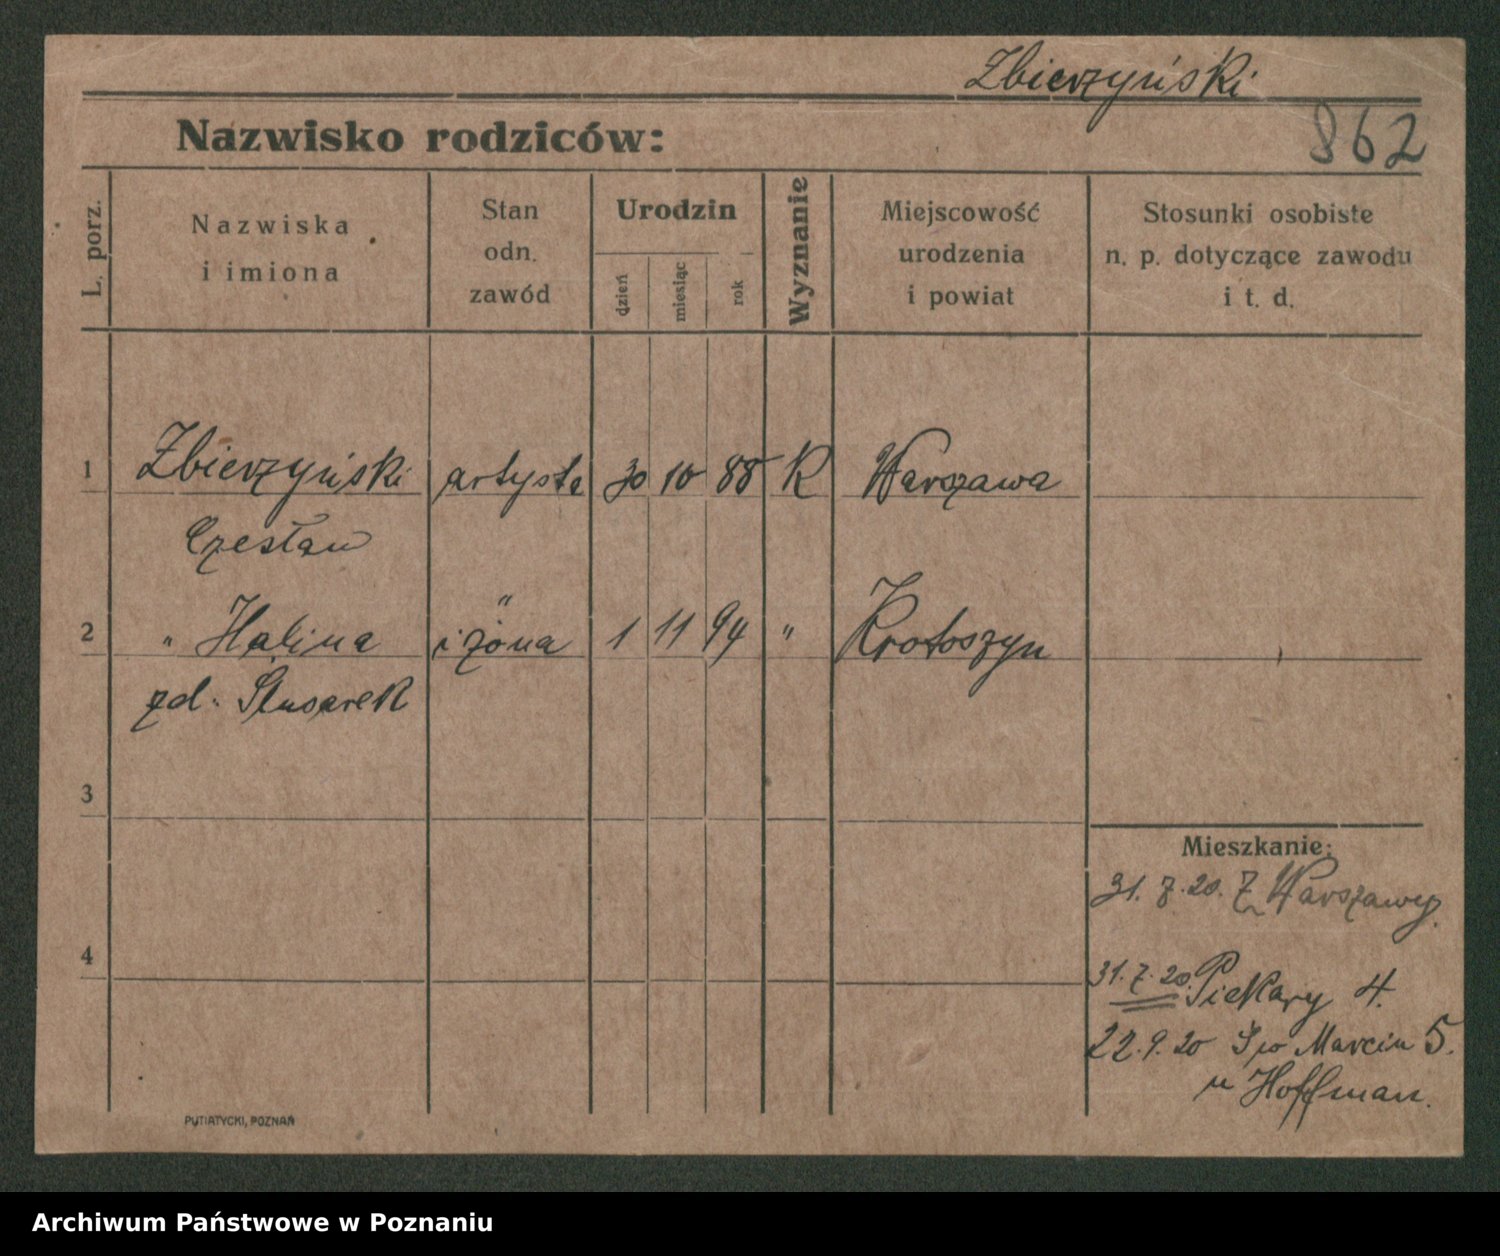 Zbierzyński
862
Nazwisko rodziców:
L. porz.
Nazwiska
i imiona
Stan
odn.
zawód
Urodzin
dzień
miesiąc
rok
Wyznanie
Miejscowość
urodzenia
i powiat
Stosunki osobiste
n. p. dotyczące zawodu
i t. d.
1 Zbierzyński artysta 30 10 88 K Warszawa
Czesław
2 " Halina " i żona 1 11 94 " Krotoszyn
zd. Ślusarek
3
4
Mieszkanie:
31. 7. 20. Z Warszawy.
31. 7. 20. Piekary 4.
22. 9. 20 Św Marcin 5.
u Hoffman.
PUTIATYCKI, POZNAŃ
Archiwum Państwowe w Poznaniu